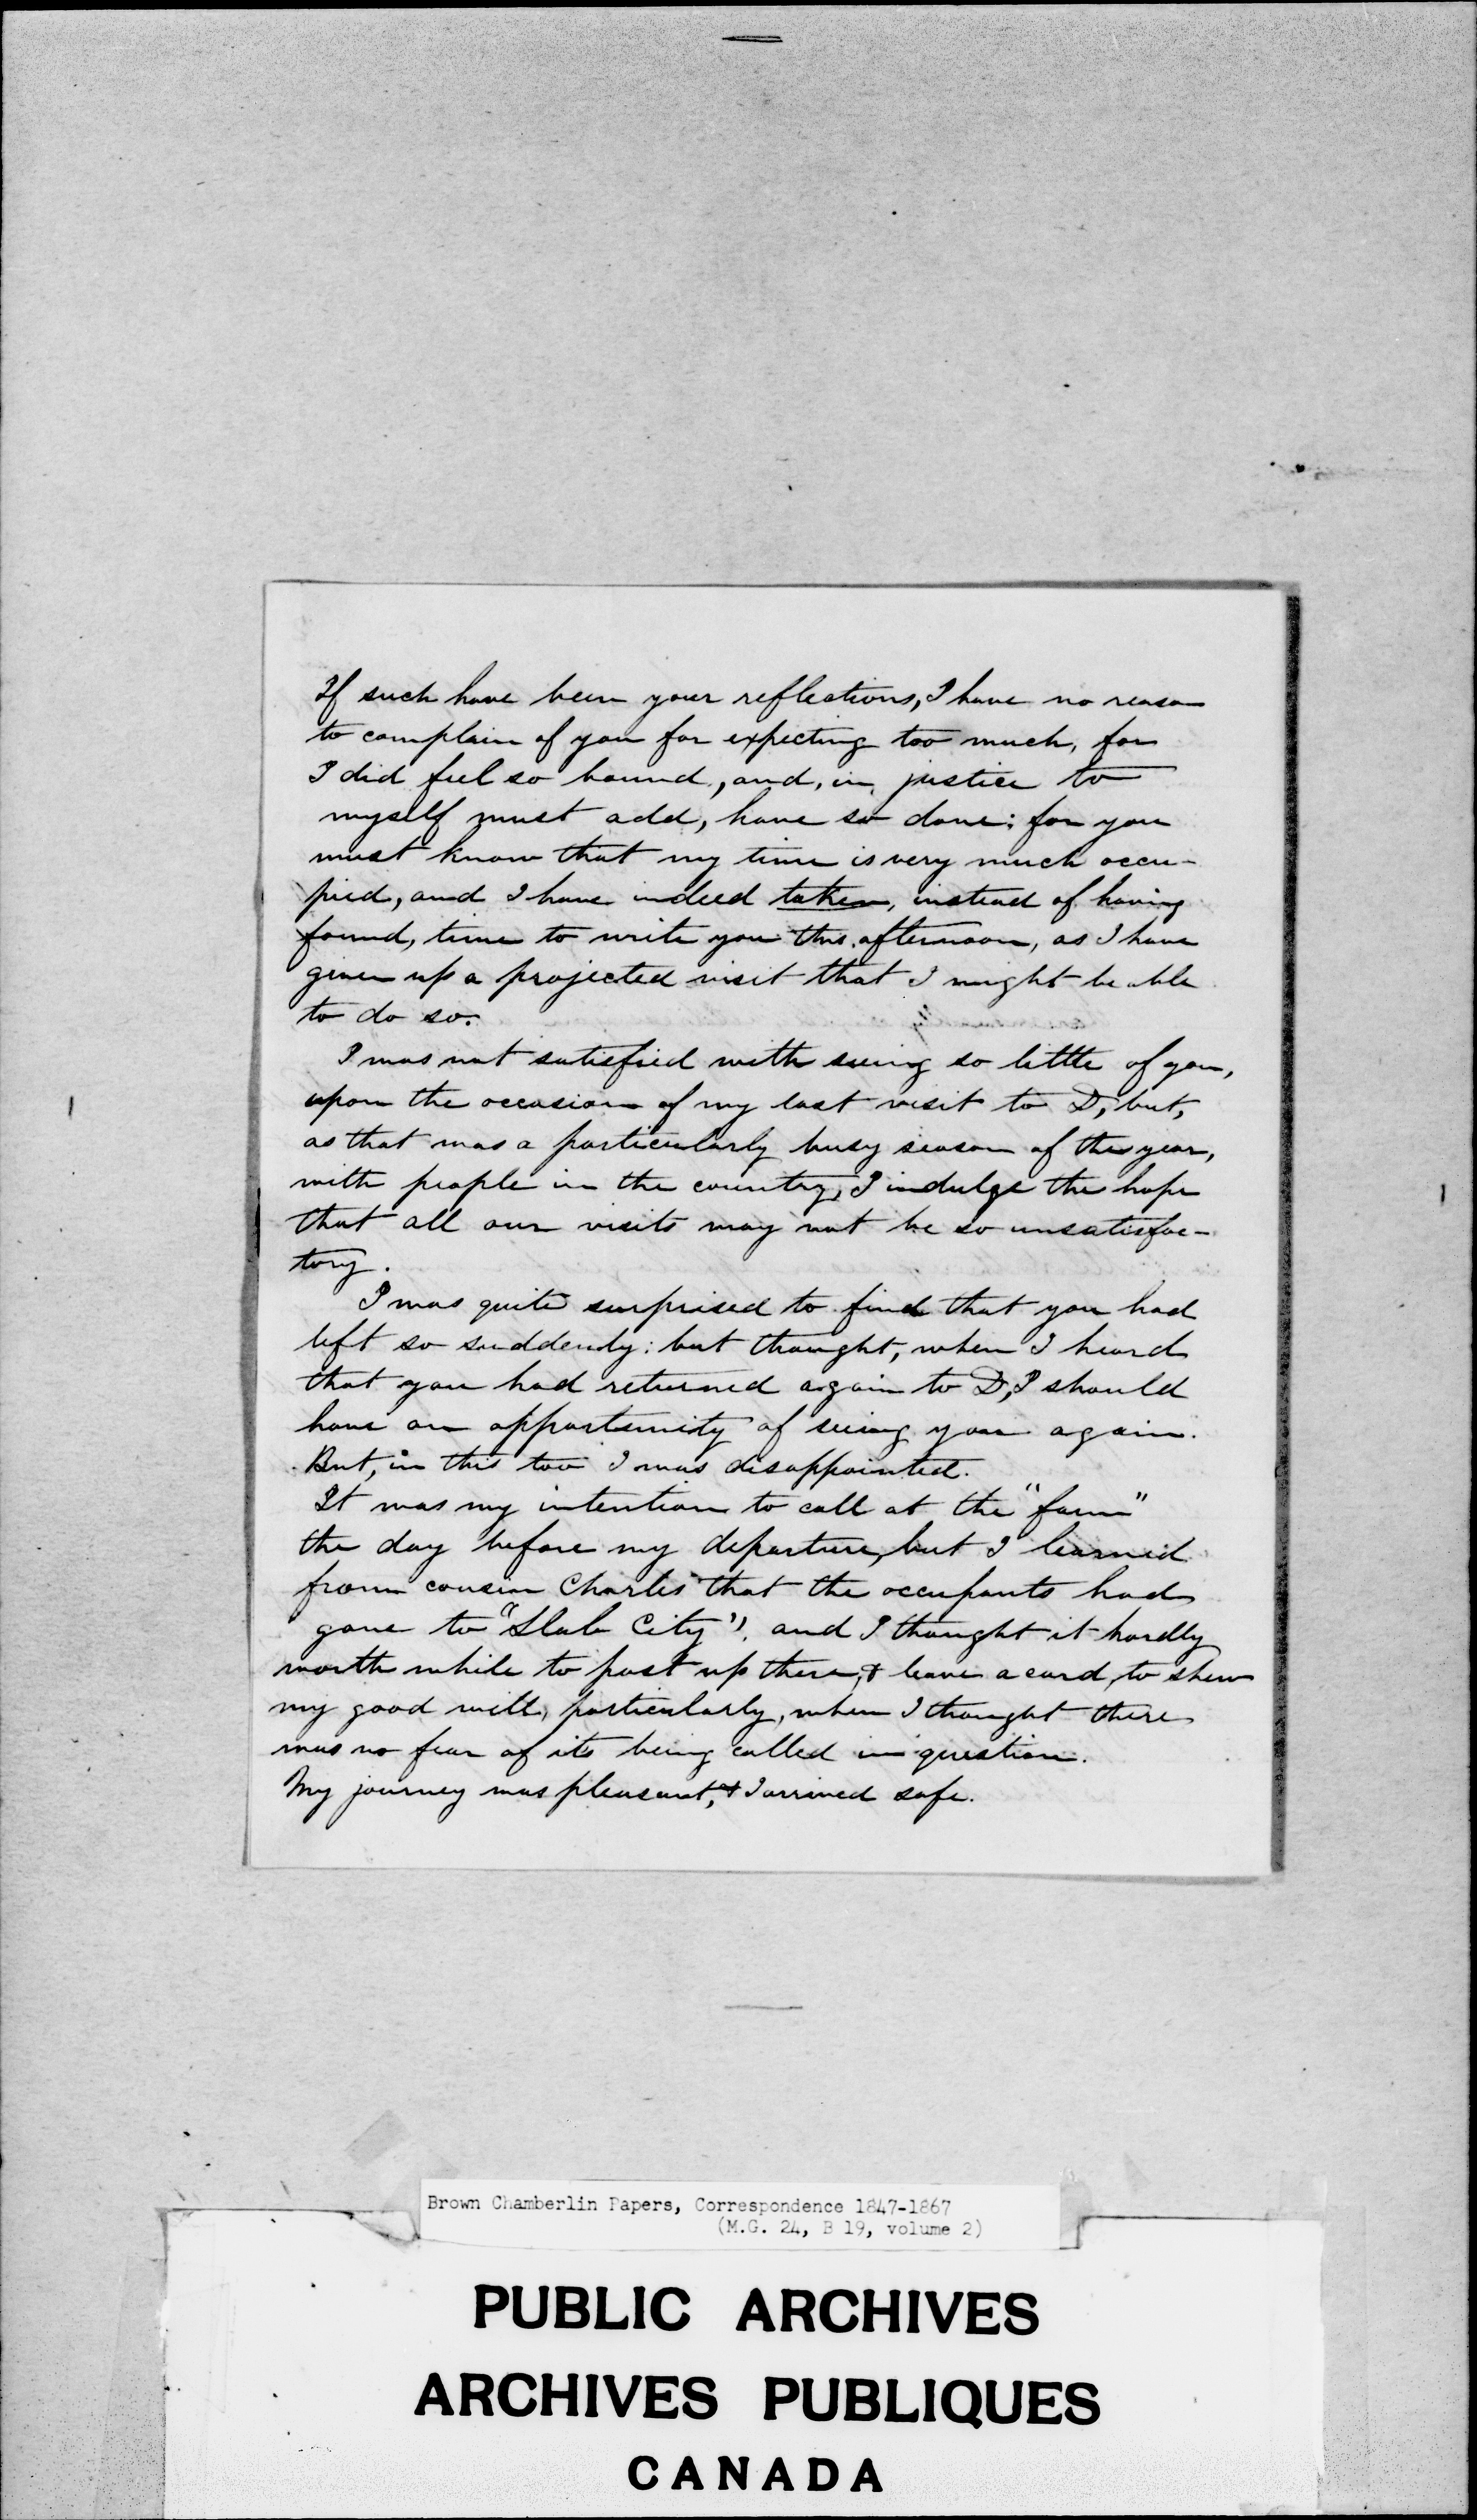 If such have been your reflections, I have no reason
to complain of you for expecting too much, for
I did feel so bound, and, in justice to
myself must add, have so done; for you
must know that my time is very much occu-
pied, and I have indeed taken, instead of having
found, time to write you this afternoon, as I have
given up a projected visit that I might be able
to do so.
I was not satisfied with seeing so little of you,
upon the occasion of my last visit to D; but,
as that was a particularly busy season of the year,
with people in the country, I indulge the hope
that all our visits may not be so unsatisfac-
tory.
I was quite surprised to find that you had
left so suddenly: but thought, when I heard
that you had returned again to D, I should
have an opportunity of seeing you again.
But, in this too I was disappointed.
It was my intention to call at the "farm"
the day before my departure, but I learned
from cousin Charles that the occupants had
gone to "Slab City", and I thought it hardly
worth while to post up there, & leave a card, to shew
my good will, particularly, when I thought there
was no fear of its being called in question.
My journey was pleasant, & I arrived safe.
Brown Chamberlin Papers, Correspondence 1847-1867
(M.G. 24, B 19, volume 2)
PUBLIC ARCHIVES
ARCHIVES PUBLIQUES
CANADA